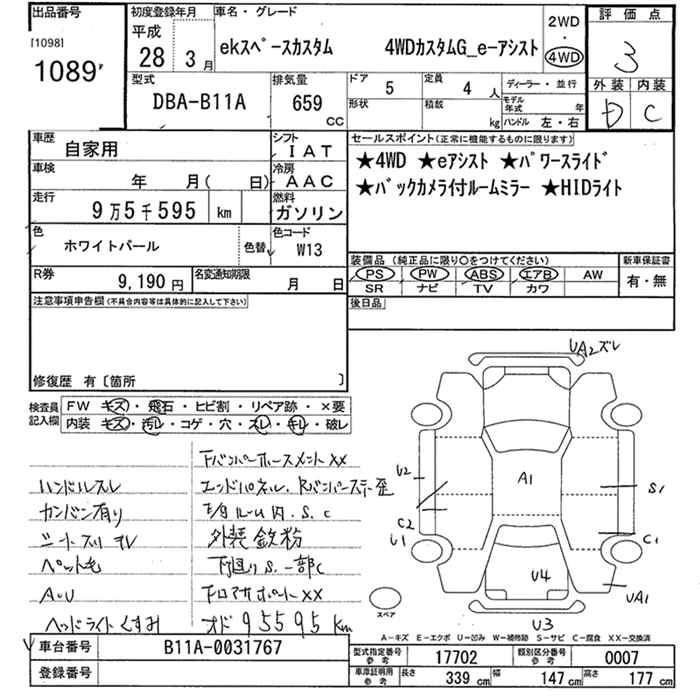 出品番号
[1098]
1089
初度登録年月
平成
28 3 月
車名・グレード
ekスペースカスタム 4WDカスタムG_e-アシスト
2WD
・
4WD
評価点
3
外装 内装
D C
型式
DBA-B11A
排気量
659
CC
ドア 5
定員 4 人
形状
積載 kg
ディーラー・並行
モデル年式 年
ハンドル 左・右
車歴
自家用
シフト
IAT
車検
年 月( 日)
冷房
AAC
走行
9万5千595 km
燃料
ガソリン
色
ホワイトパール
色替
色コード
W13
R券
9,190 円
名変通知期限
月 日
セールスポイント(正常に機能するものに限ります)
★4WD ★eアシスト ★パワースライド
★バックカメラ付ルームミラー ★HIDライト
装備品(純正品に限り○をつけてください)
PS PW ABS エアB AW
SR ナビ TV カワ
新車保証書
有・無
後日品
注意事項申告欄(不具合内容等は具体的に記入して下さい)
修復歴 有〔箇所 〕
検査員記入欄
FW キズ・飛石・ヒビ割・リペア跡・×要
内装 キズ・汚レ・コゲ・穴・スレ・キレ・破レ
ハンドルスレ
カンバン有り
シートスリキレ
ペット毛
A・U
ヘッドライトくすみ
FバンパーホースメントXX
エンドパネル、Rバンパーステー歪
外装鉄粉
下廻りS、一部C
FロアサポートXX
オド95595km
UA2ズレ
U2
A1
S1
C2
U1
C1
U4
UA1
U3
スペア
A-キズ E-エクボ U-凹み W-補修跡 S-サビ C-腐食 XX-交換済
車台番号
B11A-0031767
登録番号
型式指定番号 参考 17702
類別区分番号 参考 0007
車庫証明用 参考
長さ 339 cm 幅 147 cm 高さ 177 cm